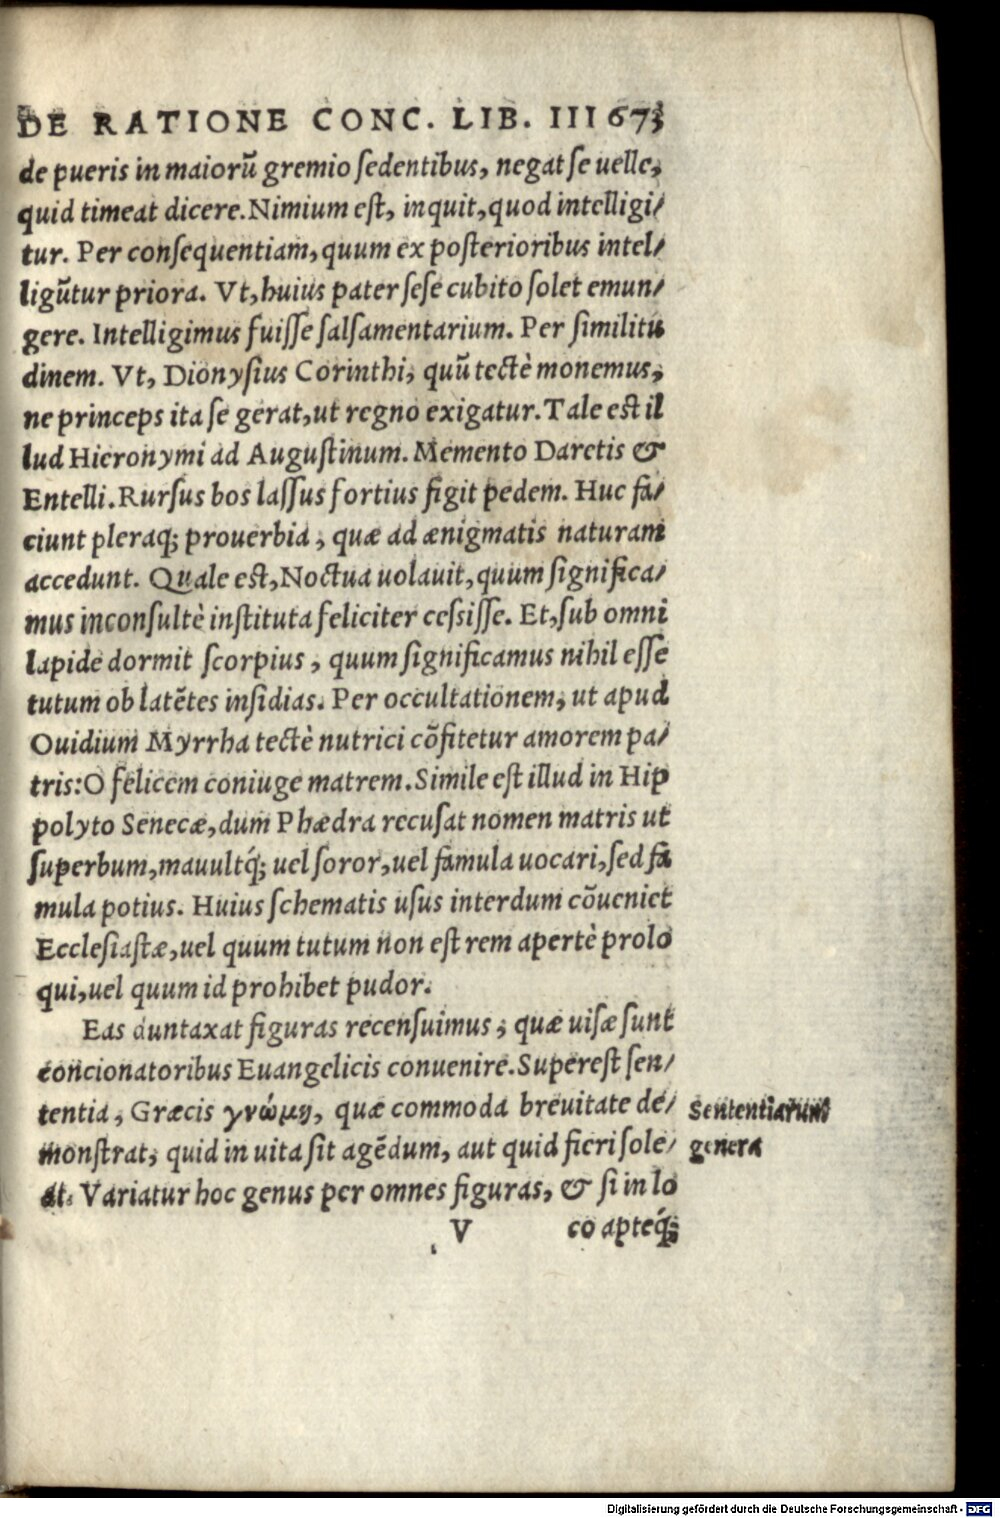 DE RATIONE CONC. LIB. III 673
de pueris in maiorũ gremio ſedentibus, negat ſe uelle,
quid timeat dicere. Nimium eſt, inquit, quod intelligi/
tur. Per conſequentiam, quum ex poſterioribus intel/
ligũtur priora. Vt, huius pater ſeſe cubito ſolet emun/
gere. Intelligimus fuiſſe ſalſamentarium. Per ſimilitu
dinem. Vt, Dionyſius Corinthi, quũ tectè monemus,
ne princeps ita ſe gerat, ut regno exigatur. Tale eſt il
lud Hieronymi ad Auguſtinum. Memento Daretis &
Entelli. Rurſus bos laſſus fortius figit pedem. Huc fa/
ciunt pleraq; prouerbia, quæ ad ænigmatis naturam
accedunt. Quale eſt, Noctua uolauit, quum ſignifica/
mus inconſultè inſtituta feliciter ceſsiſſe. Et, ſub omni
lapide dormit ſcorpius, quum ſignificamus nihil eſſe
tutum ob latẽtes inſidias. Per occultationem, ut apud
Ouidium Myrrha tectè nutrici cõfitetur amorem pa/
tris: O felicem coniuge matrem. Simile eſt illud in Hip
polyto Senecæ, dum Phædra recuſat nomen matris ut
ſuperbum, mauultq́; uel ſoror, uel famula uocari, ſed fa
mula potius. Huius ſchematis uſus interdum cõueniet
Eccleſiaſtæ, uel quum tutum non eſt rem apertè prolo
qui, uel quum id prohibet pudor.
Eas duntaxat figuras recenſuimus, quæ uiſæ ſunt
concionatoribus Euangelicis conuenire. Supereſt ſen/
tentia, Græcis γνώμη, quæ commoda breuitate de/
monſtrat, quid in uita ſit agẽdum, aut quid fieri ſole/
at. Variatur hoc genus per omnes figuras, & ſi in lo
Sententiarum
genera
V co apteq́;
Digitalisierung gefördert durch die Deutsche Forschungsgemeinschaft - DFG